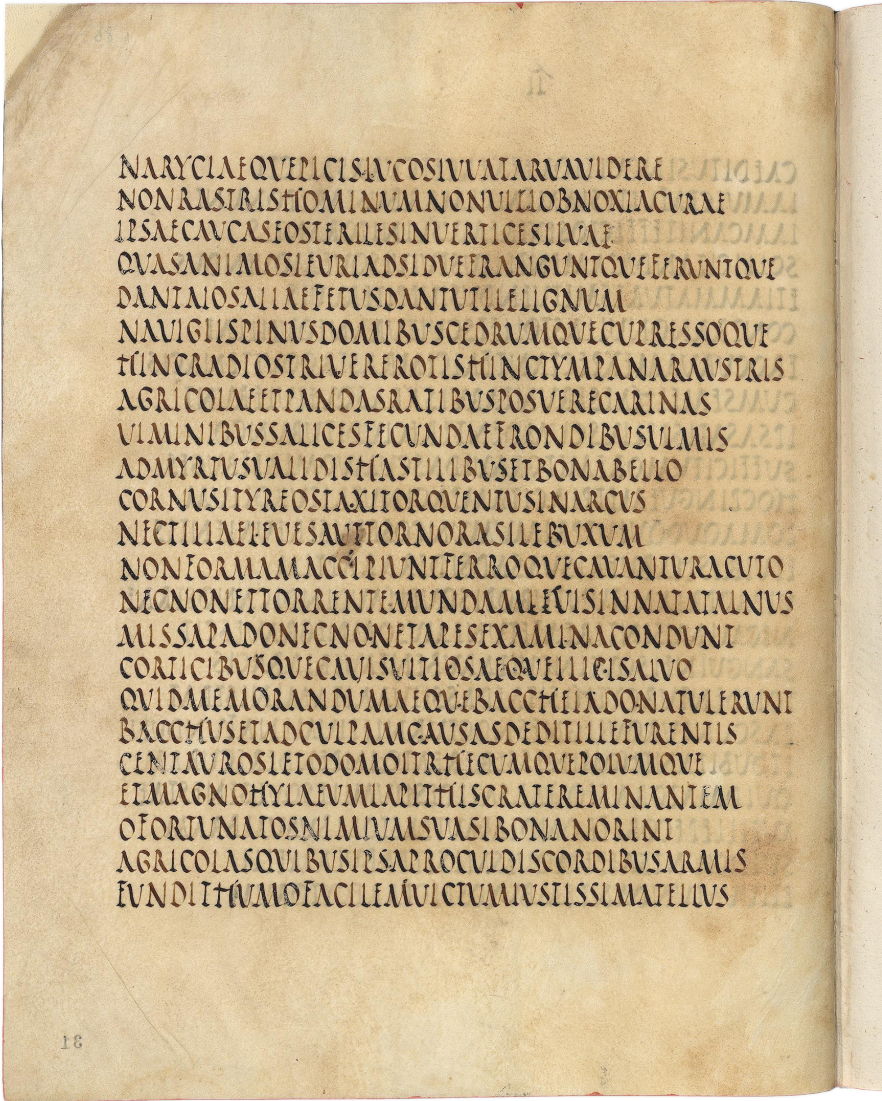 NARYCIAEQVEPICISLVCOSIVVATARVAVIDERE
NONRASTRISHOMINVMNONVLLIOBNOXIACVRAE
IPSAECAVCASEOSTERILESINVERTICESILVAE
QVASANIMOSIEVRIADSIDVEFRANGVNTQVEFERVNTQVE
DANTALOSALIAEFETVSDANTVTILELIGNVM
NAVIGIISPINVSDOMIBVSCEDRVMQVECVPRESSOQVE
HINCRADIOSTRIVEREROTISHINCTYMPANARAVSTRIS
AGRICOLAEETPANDASRATIBVSPOSVERECARINAS
VIMINIBVSSALICESFECVNDAEFRONDIBVSVLMIS
ADMYRTVSVALIDISHASTILIBVSETBONABELLO
CORNVSITYREOSTAXITORQVENTVSINARCVS
NECTILIAELEVESAVTTORNORASILEBVXVM
NONFORMAMACCIPIVNTFERROQVECAVANTVRACVTO
NECNONETTORRENTEMVNDAMLEVISINNATATALNVS
MISSAPADONECNONETAPESEXAMINACONDVNT
CORTICIBVSQVECAVISVITIOSAEQVEILICISALVO
QVIDMEMORANDVMAEQVEBACCHEIADONATVLERVNT
BACCHVSETADCVLPAMCAVSASDEDITILLEFVRENTIS
CENTAVROSLETODOMOITRHECVMQVEPOLVMQVE
ETMAGNOHYLAEVMLAPITHISCRATEREMINANTEM
OFORTVNATOSNIMIVMSVASIBONANORINT
AGRICOLASQVIBVSIPSAPROCVLDISCORDIBVSARMIS
FVNDITHVMOFACILEMVICTVMIVSTISSIMATELLVS